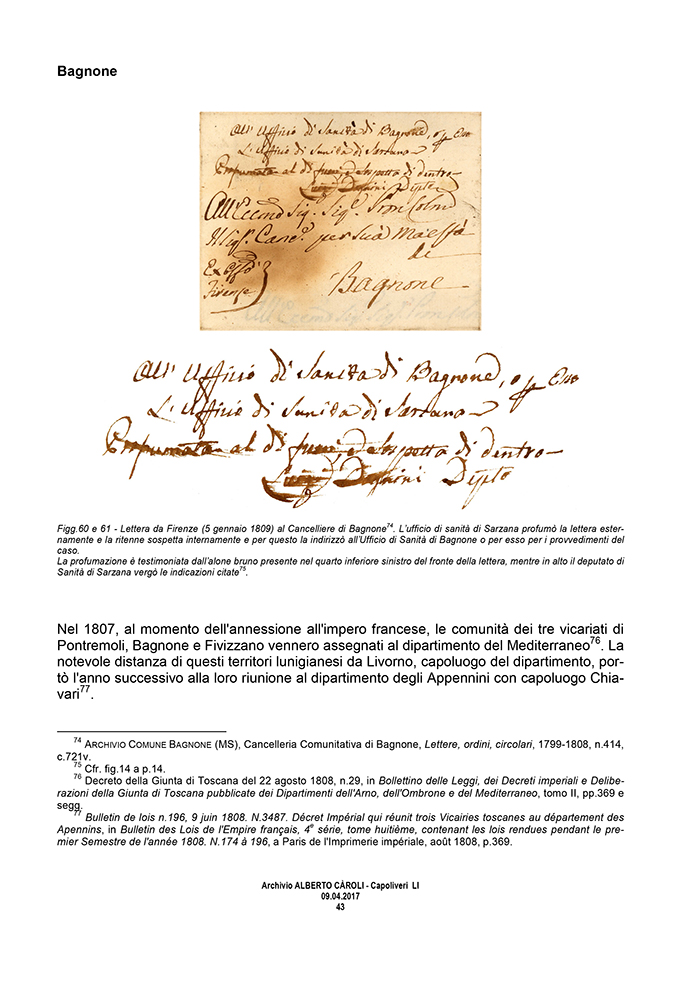 Bagnone
All' Uffizio di Sanità di Bagnone, o
L'Uffizio di Sanità di Sarzana
Profumata al di fuori, e sospetta di dentro
All'Eccmo Sigr. Sigr.
Il Sigr. Cance. per sua Maestà
di
Ex Offo
Firenze
Bagnone
All' Uffizio di Sanità di Bagnone, o
L'Uffizio di Sanità di Sarzana
Profumata al di fuori, e sospetta di dentro
Dipto
Figg.60 e 61 - Lettera da Firenze (5 gennaio 1809) al Cancelliere di Bagnone74. L'ufficio di sanità di Sarzana profumò la lettera ester-
namente e la ritenne sospetta internamente e per questo la indirizzò all'Ufficio di Sanità di Bagnone o per esso per i provvedimenti del
caso.
La profumazione è testimoniata dall'alone bruno presente nel quarto inferiore sinistro del fronte della lettera, mentre in alto il deputato di
Sanità di Sarzana vergò le indicazioni citate75.
Nel 1807, al momento dell'annessione all'impero francese, le comunità dei tre vicariati di
Pontremoli, Bagnone e Fivizzano vennero assegnati al dipartimento del Mediterraneo76. La
notevole distanza di questi territori lunigianesi da Livorno, capoluogo del dipartimento, por-
tò l'anno successivo alla loro riunione al dipartimento degli Appennini con capoluogo Chia-
vari77.
74 ARCHIVIO COMUNE BAGNONE (MS), Cancelleria Comunitativa di Bagnone, Lettere, ordini, circolari, 1799-1808, n.414,
c.721v.
75 Cfr. fig.14 a p.14.
76 Decreto della Giunta di Toscana del 22 agosto 1808, n.29, in Bollettino delle Leggi, dei Decreti imperiali e Delibe-
razioni della Giunta di Toscana pubblicate dei Dipartimenti dell'Arno, dell'Ombrone e del Mediterraneo, tomo II, pp.369 e
segg.
77 Bulletin de lois n.196, 9 juin 1808. N.3487. Décret Impérial qui réunit trois Vicairies toscanes au département des
Apennins, in Bulletin des Lois de l'Empire français, 4e série, tome huitième, contenant les lois rendues pendant le pre-
mier Semestre de l'année 1808. N.174 à 196, a Paris de l'Imprimerie impériale, août 1808, p.369.
Archivio ALBERTO CÀROLI - Capoliveri LI
09.04.2017
43